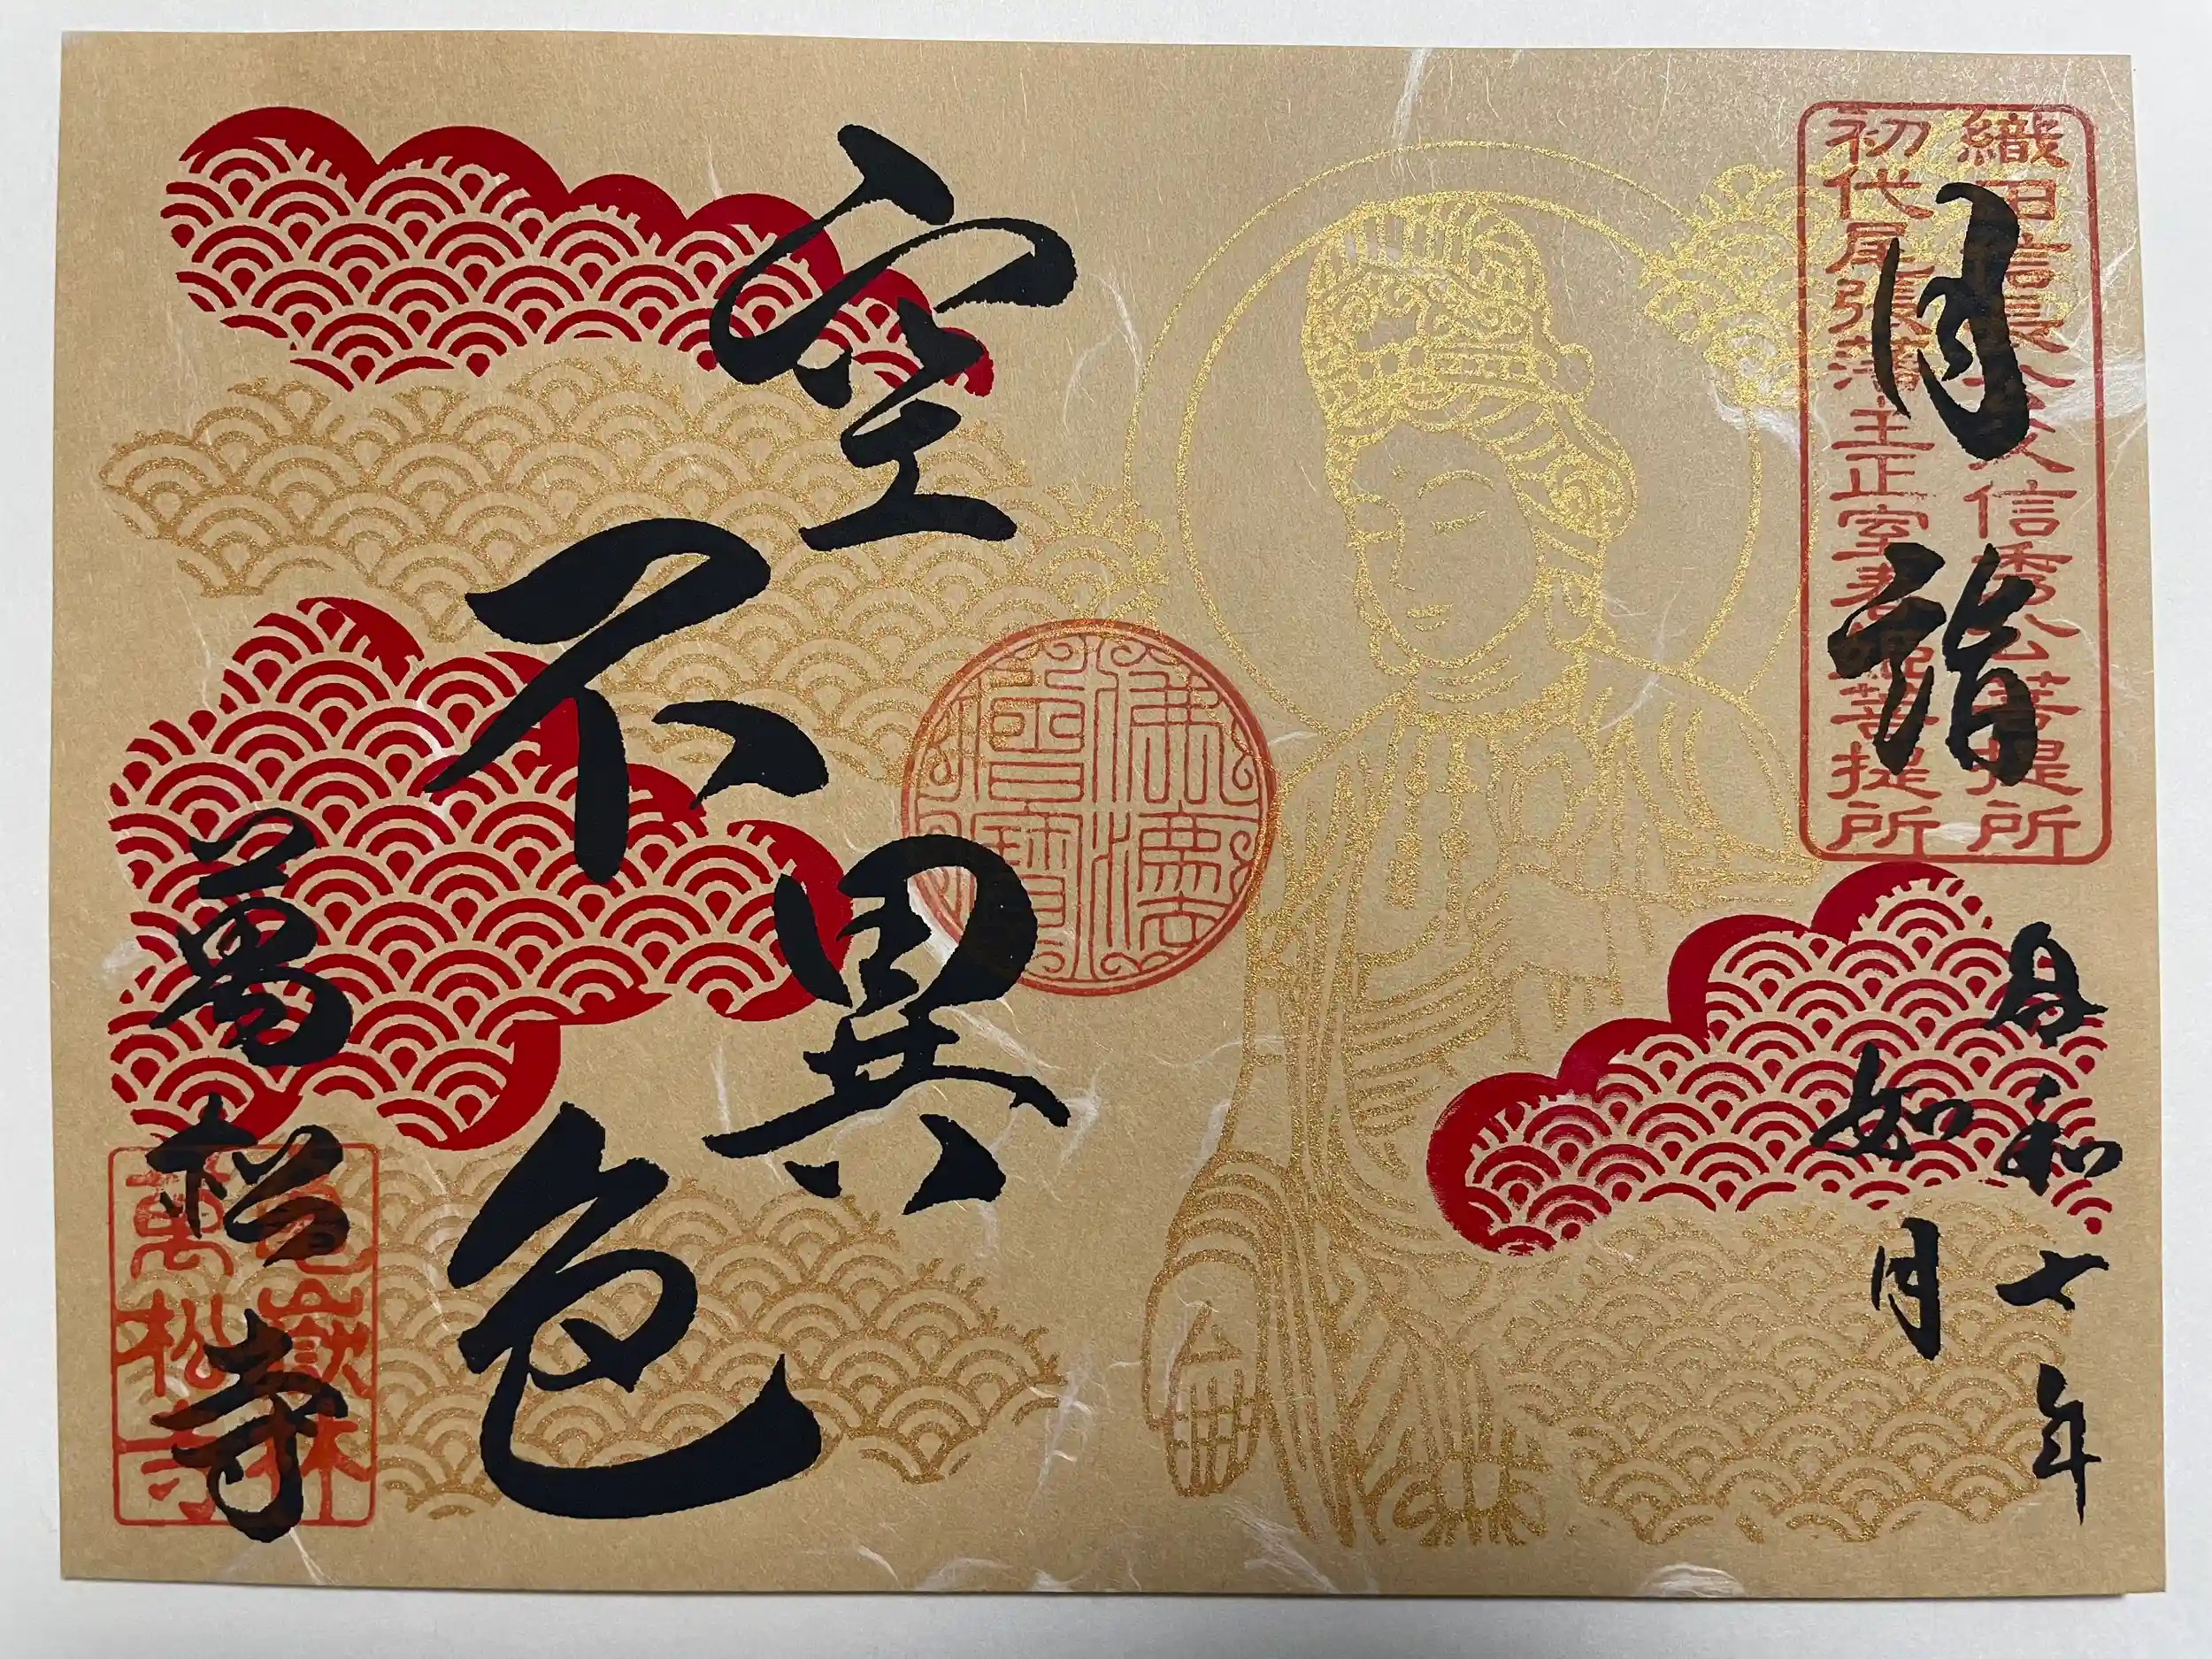 織田信長公父信秀公菩提所
初代尾張藩主正室春姫菩提所
月詣
令和七年
如月
佛法
僧寶
空不異色
萬松寺
亀嶽林
萬松寺